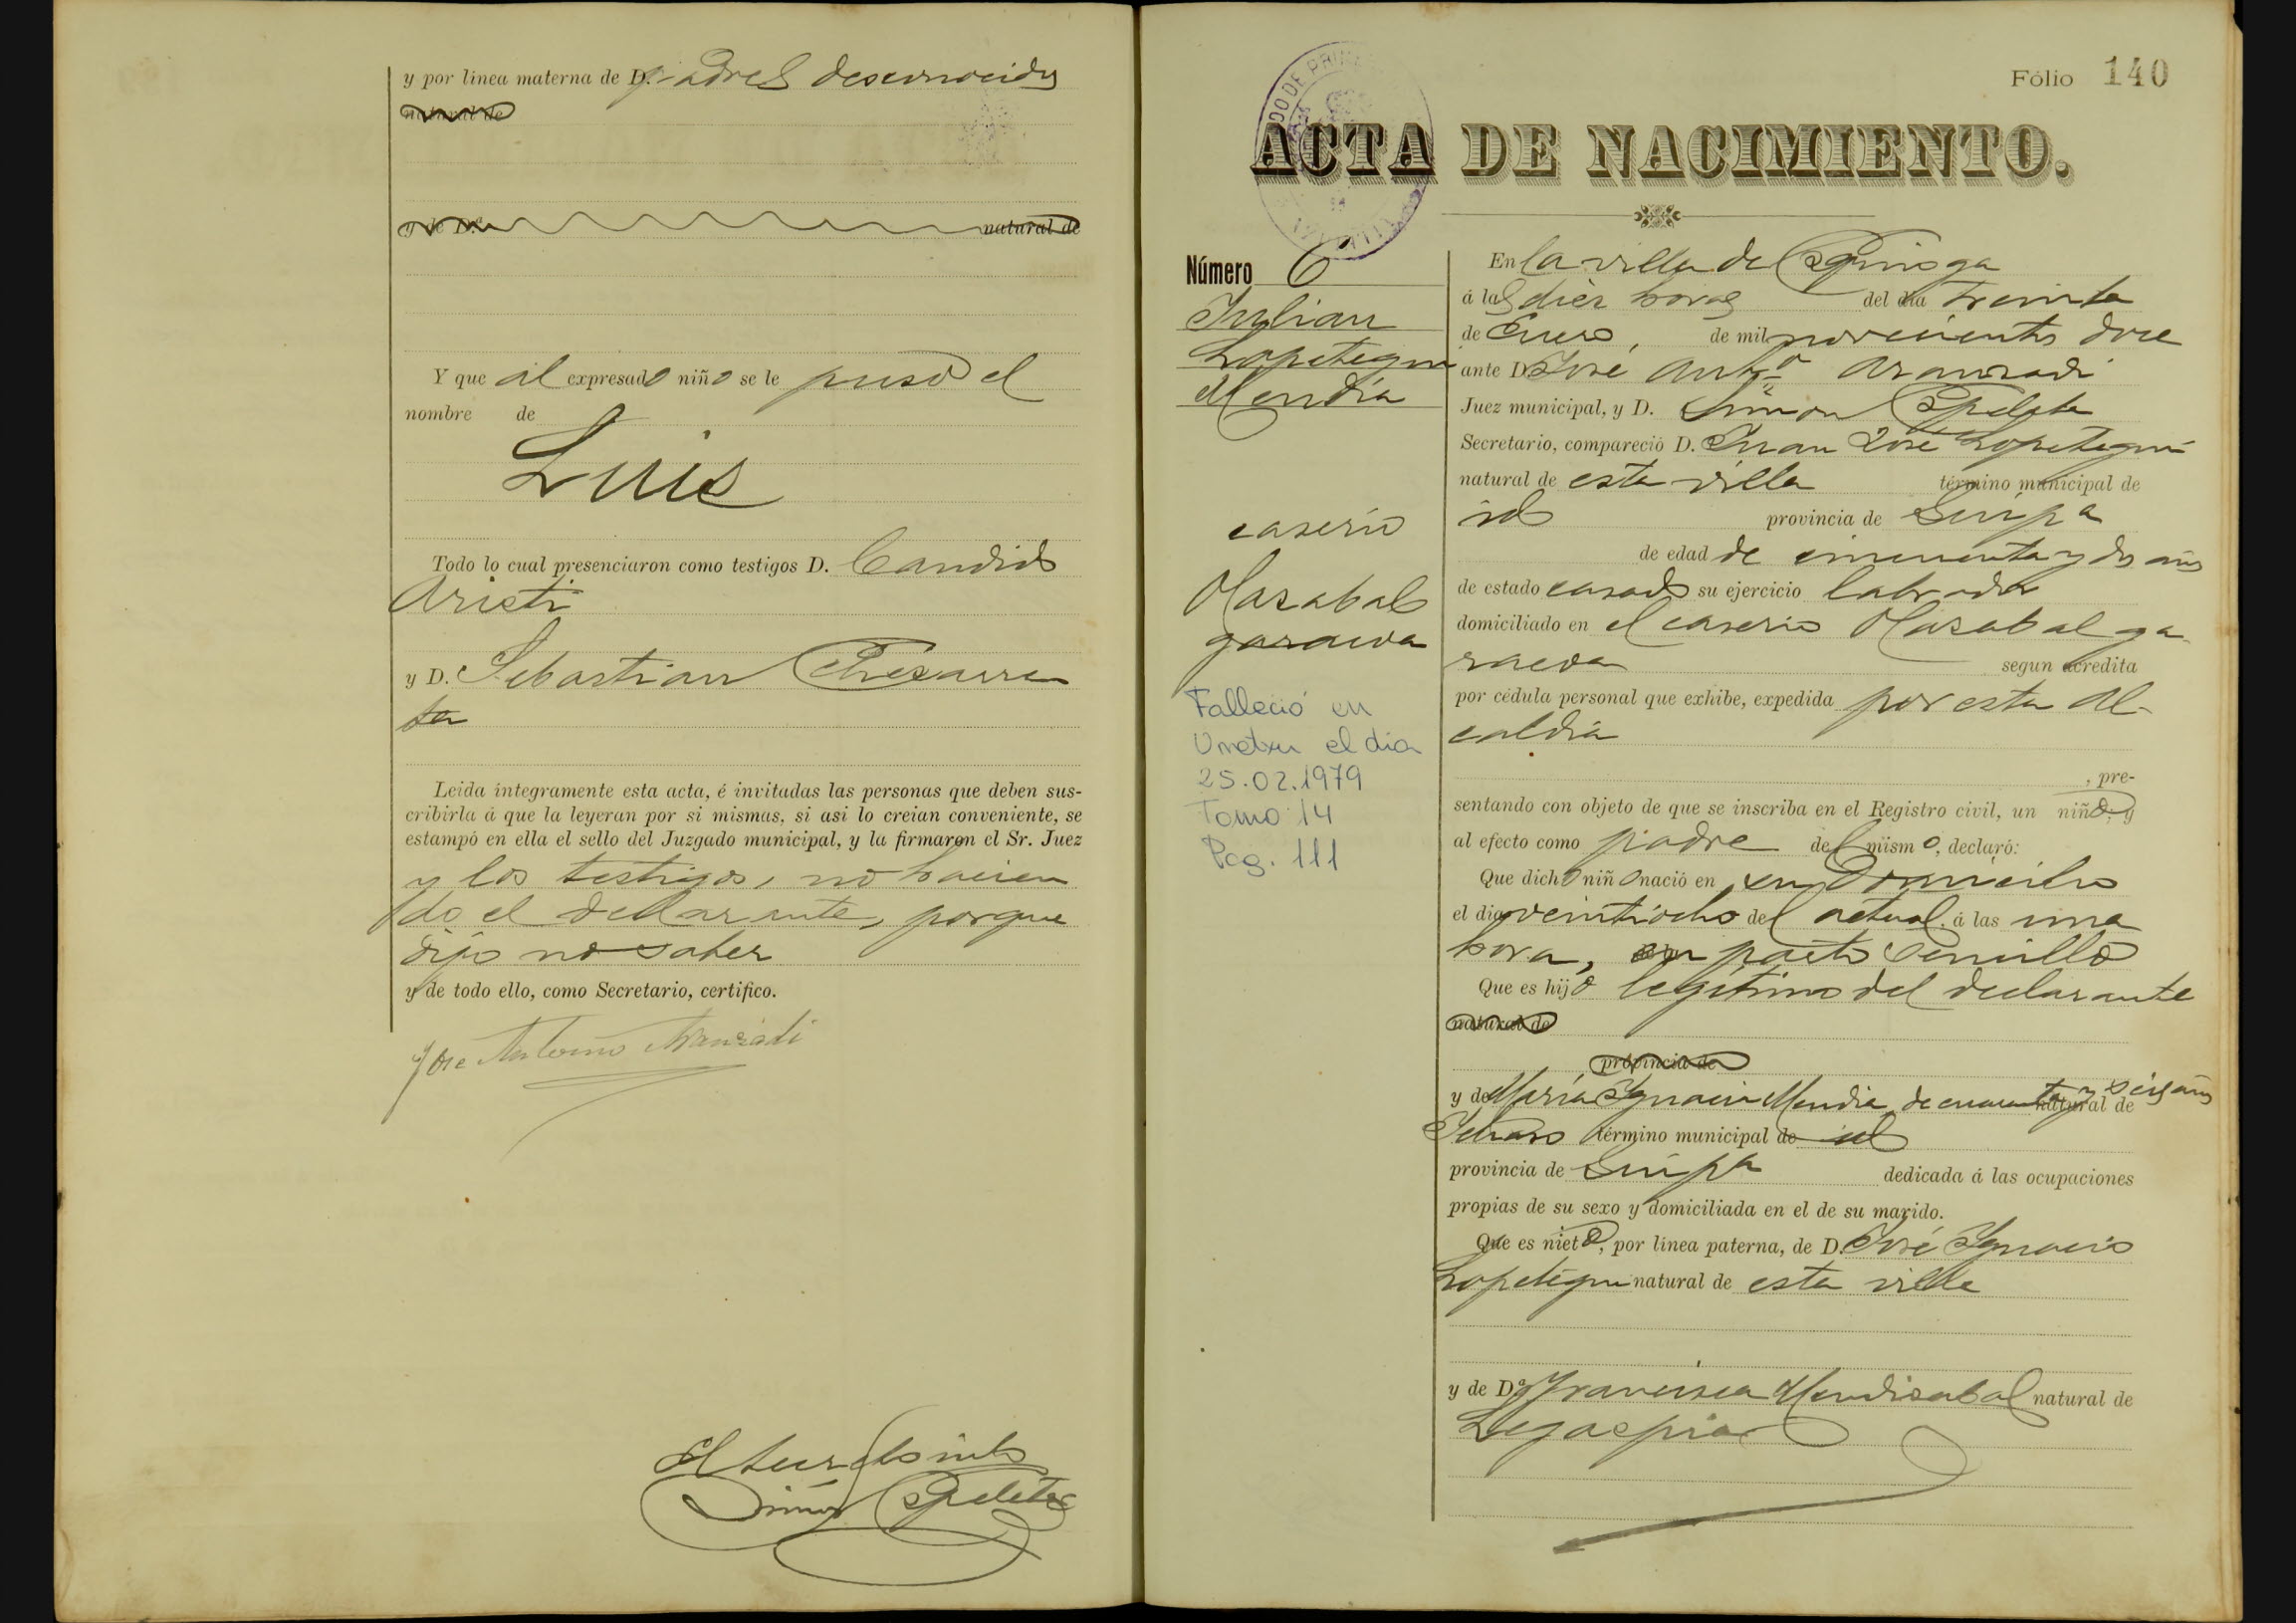 y por línea materna de D. padres desconocidos
natural de
y de D.ª natural de
Y que al expresado niño se le puso el
nombre de
Luis
Todo lo cual presenciaron como testigos D. Candido
Aristi
y D. Sebastian Echezarre
ta
Leida íntegramente esta acta, é invitadas las personas que deben sus-
cribirla á que la leyeran por si mismas, si asi lo creian conveniente, se
estampó en ella el sello del Juzgado municipal, y la firmaron el Sr. Juez
y los testigos, no hacien
do el declarante, porque
dijo no saber
y de todo ello, como Secretario, certifico.
Jose Antonio Aranzadi
Simon Espeleta
Fólio 140
ACTA DE NACIMIENTO.
Número 6
Julian
Lopetegui
Mendia
caserio
Olazabal
garaicoa
Falleció en
Urretxu el dia
25.02.1979
Tomo 14
Pag. 111
En la villa de Ezquioga
á las diez horas del dia treinta
de Enero, de mil novecientos doce
ante D. José Antº Aranzadi
Juez municipal, y D. Simon Espeleta
Secretario, compareció D. Juan José Lopetegui
natural de esta villa término municipal de
id provincia de Guipª
de edad de cincuenta y dos años
de estado casado su ejercicio labrador
domiciliado en el caserio Olazabal ga
raicoa segun acredita
por cédula personal que exhibe, expedida por esta Al-
caldia
, pre-
sentando con objeto de que se inscriba en el Registro civil, un niño, y
al efecto como padre del mismo, declaró:
Que dicho niño nació en su domicilio
el dia veintiocho del actual á las una
hora, en parto sencillo
Que es hijo legítimo del declarante
natural de
provincia de
y de María Ignacia Mendia, de cuarenta y seis años natural de
Ichaso término municipal de id
provincia de Guipª dedicada á las ocupaciones
propias de su sexo y domiciliada en el de su marido.
Que es nieto, por línea paterna, de D. José Ignacio
Lopetegui natural de esta villa
y de D.ª Francisca Mendizabal natural de
Legazpia